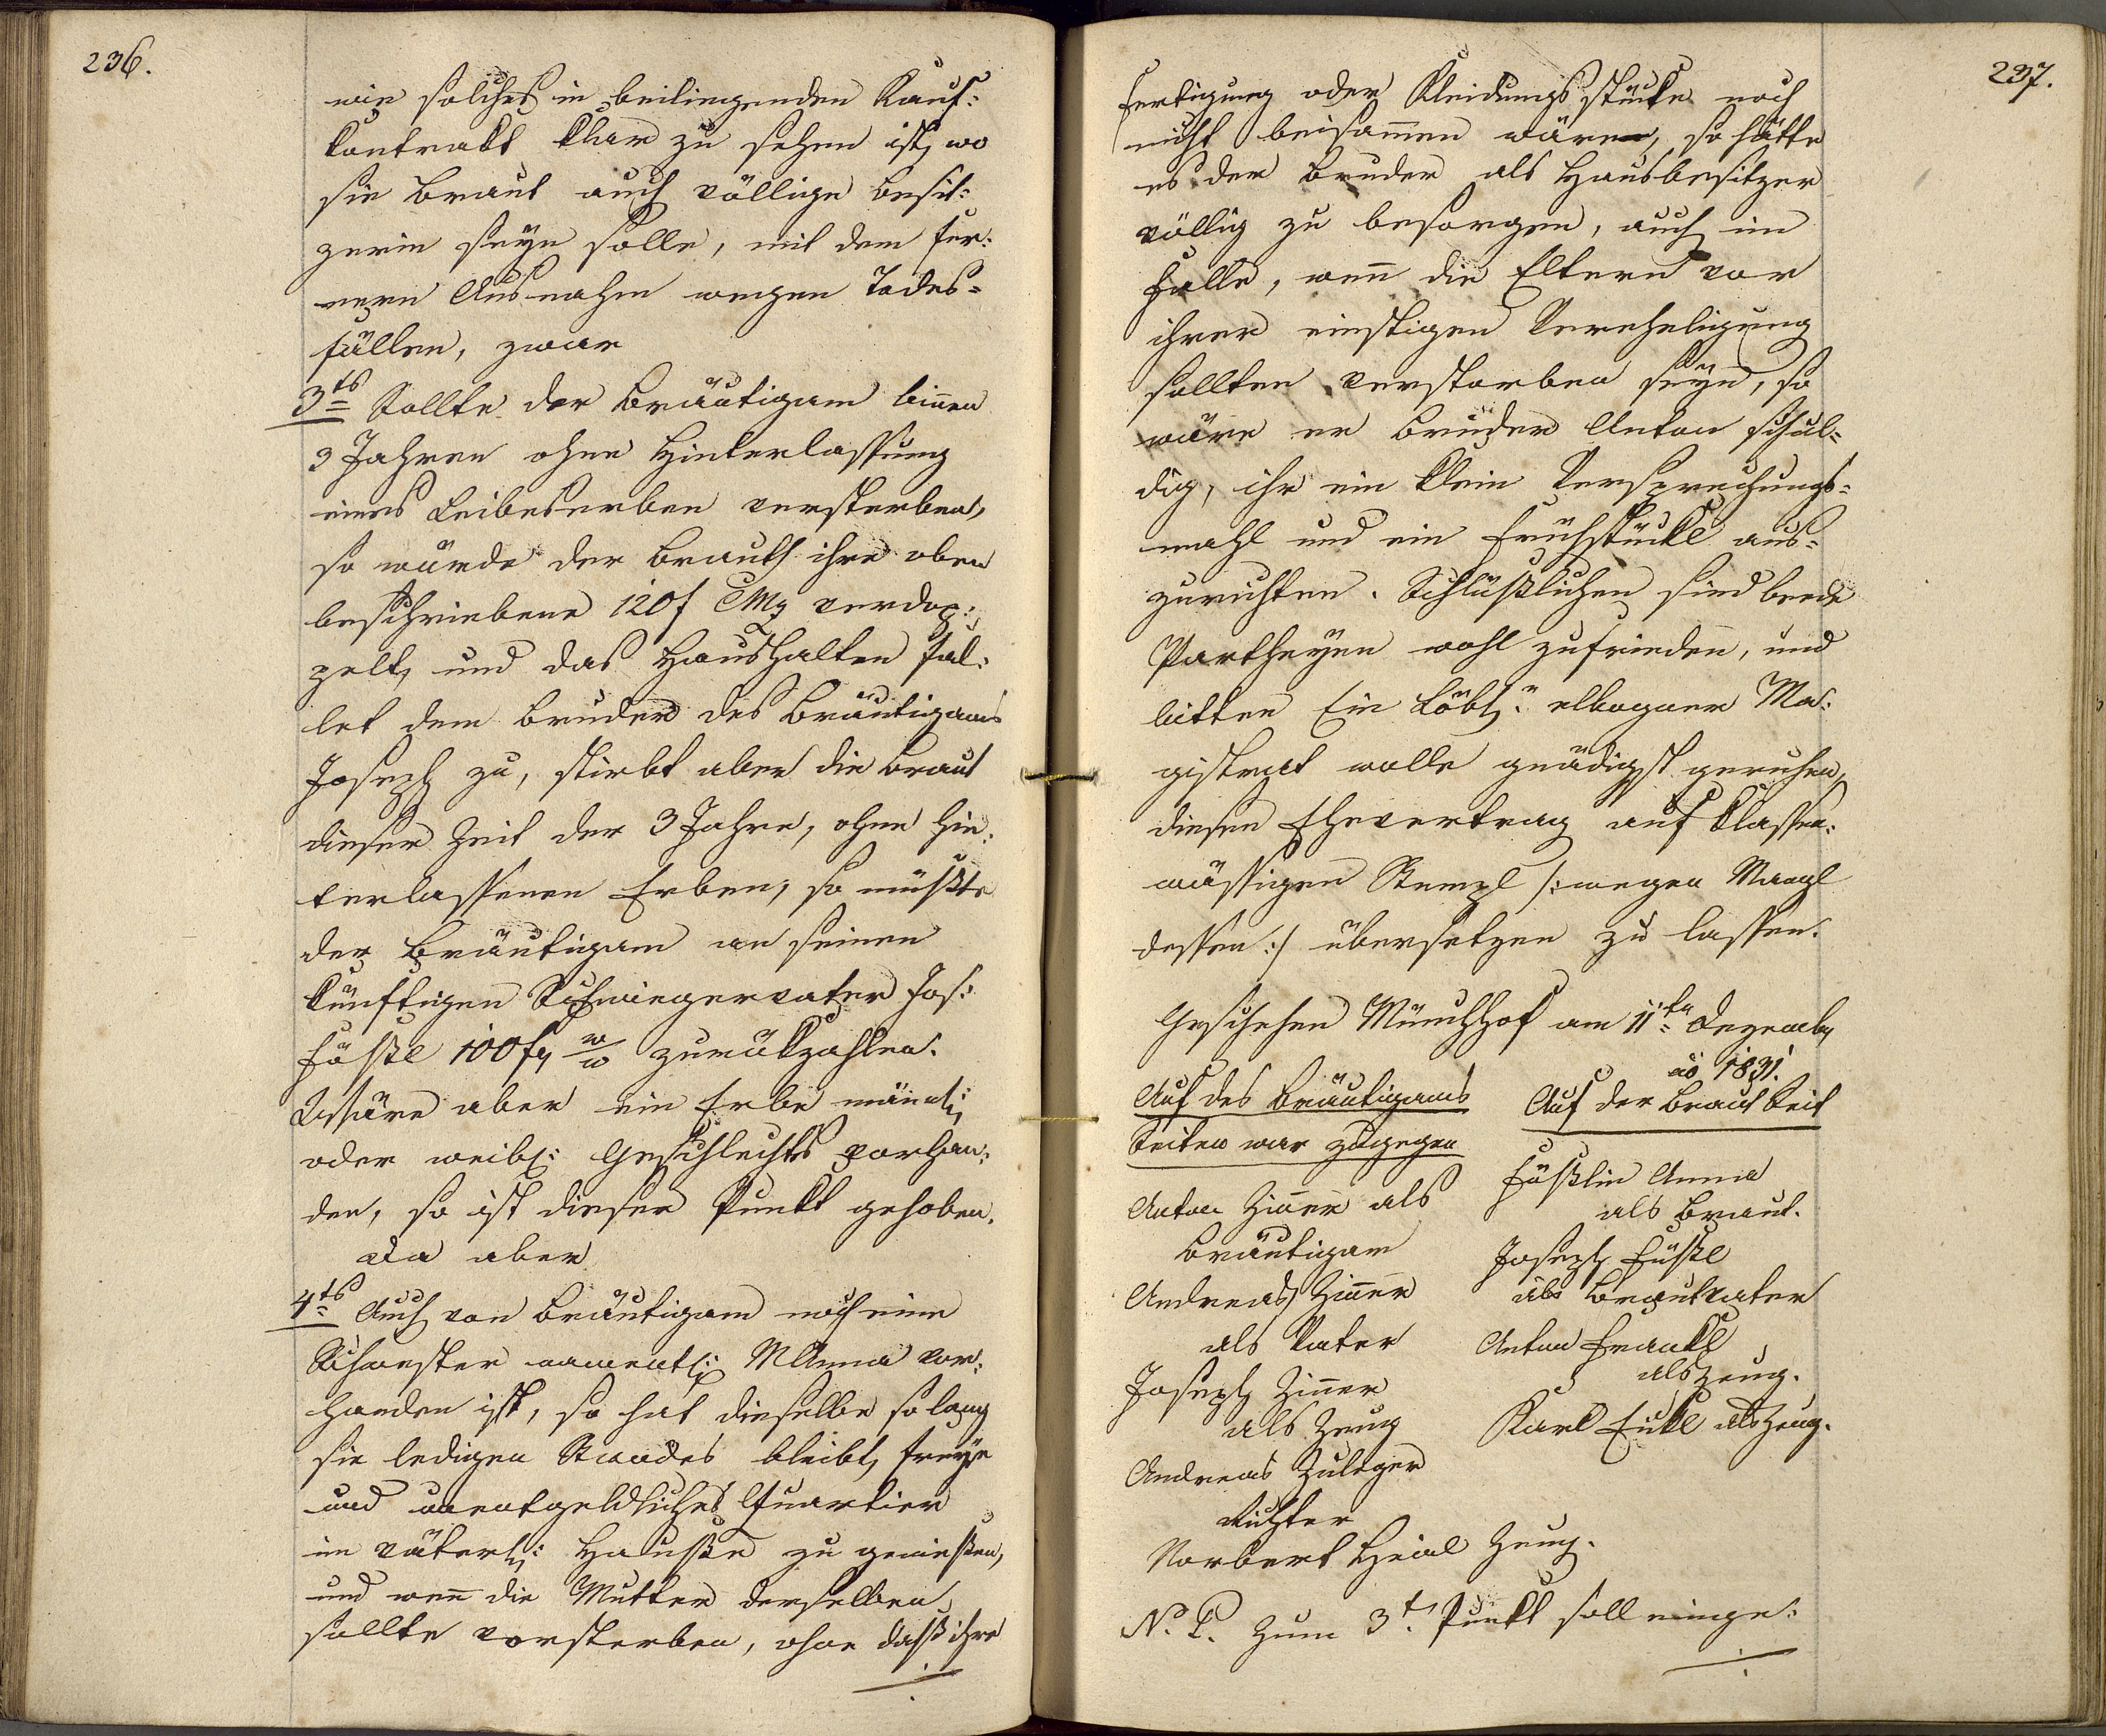 236.
wie solches in beiliegenden Kauf:
kontrakt klar zu sehen ist, wo
sie Braut auch völlige Besit:
zerin seyn solle, mit dem fer:
nern Ausnahm wegen Todes=
fällen, zwar
3ts Sollte der Bräutigam binnen
3 Jahren ohne Hinterlassung
eines Leibeserben versterben,
so würde der Brauth ihre oben
beschriebene 120 f CMz verdop:
pelt, und das Haushalten fal:
let dem Bruder des Bräutigams
Joseph zu, stirbt aber die Braut
dieser Zeit der 3 Jahre, ohne hin:
terlassenen Erben, so müßte
der Bräutigam an seinen
künftigen Schwiegervater Jos:
Füßl 100 f W/W zurükzahlen.
Wäre aber ein Erbe mänl:
oder weibl: Geschlechts vorhan:
den, so ist dieser Punkt gehoben.
Da aber
4ts Auch von Bräutigam noch eine
Schwester namentl: M Anna vor:
handen ist, so hat dieselbe so lang
sie ledigen Standes bleibt, freye
und unentgeldliches Quartier
im väterl: Hauße zu genießen,
und wenn die Mutter derselben
sollte versterben, ohne daß ihre
237.
Fertigung oder Kleidungsstüke noch
nicht beisammen wären, so hätte
es der Bruder als Hausbesitzer
völlig zu besorgen, auch im
Falle, wenn die Eltern vor
ihrer einstigen Verehelichung
sollten verstorben seyn, so
wäre er Bruder Anton schul=
dig, ihr ein klein Versprechungs=
mahl und ein Frühstückl aus=
zurichten. Schlüßlichen sind beede
Partheyen wohl zufrieden, und
bitten Ein Löbl: elbogner Ma:
gistrat wolle gnädigst geruhen,
diesen Ehevertrag auf klassen:
mässigen Stempl /: wegen Mangl
dessen :/ übersetzen zu lassen.
Geschehen Münchhof am 11ten Dezemb
ao 1831.
Auf des Bräutigams
Seiten war zugegen
Anton Zinner als
Bräutigam
Andreas Zinner
als Vater
Joseph Zinner
als Zeug
Andreas Zuleger
Richter
Norbert Heinl Zeug.
Auf der Braut Seit
Füßlin Anna
als Braut.
Joseph Füßl
als Brautvater
Anton Frankl
als Zeug.
Karl Eukl als Zeug.
N. B. Zum 3t Punkt soll einge: